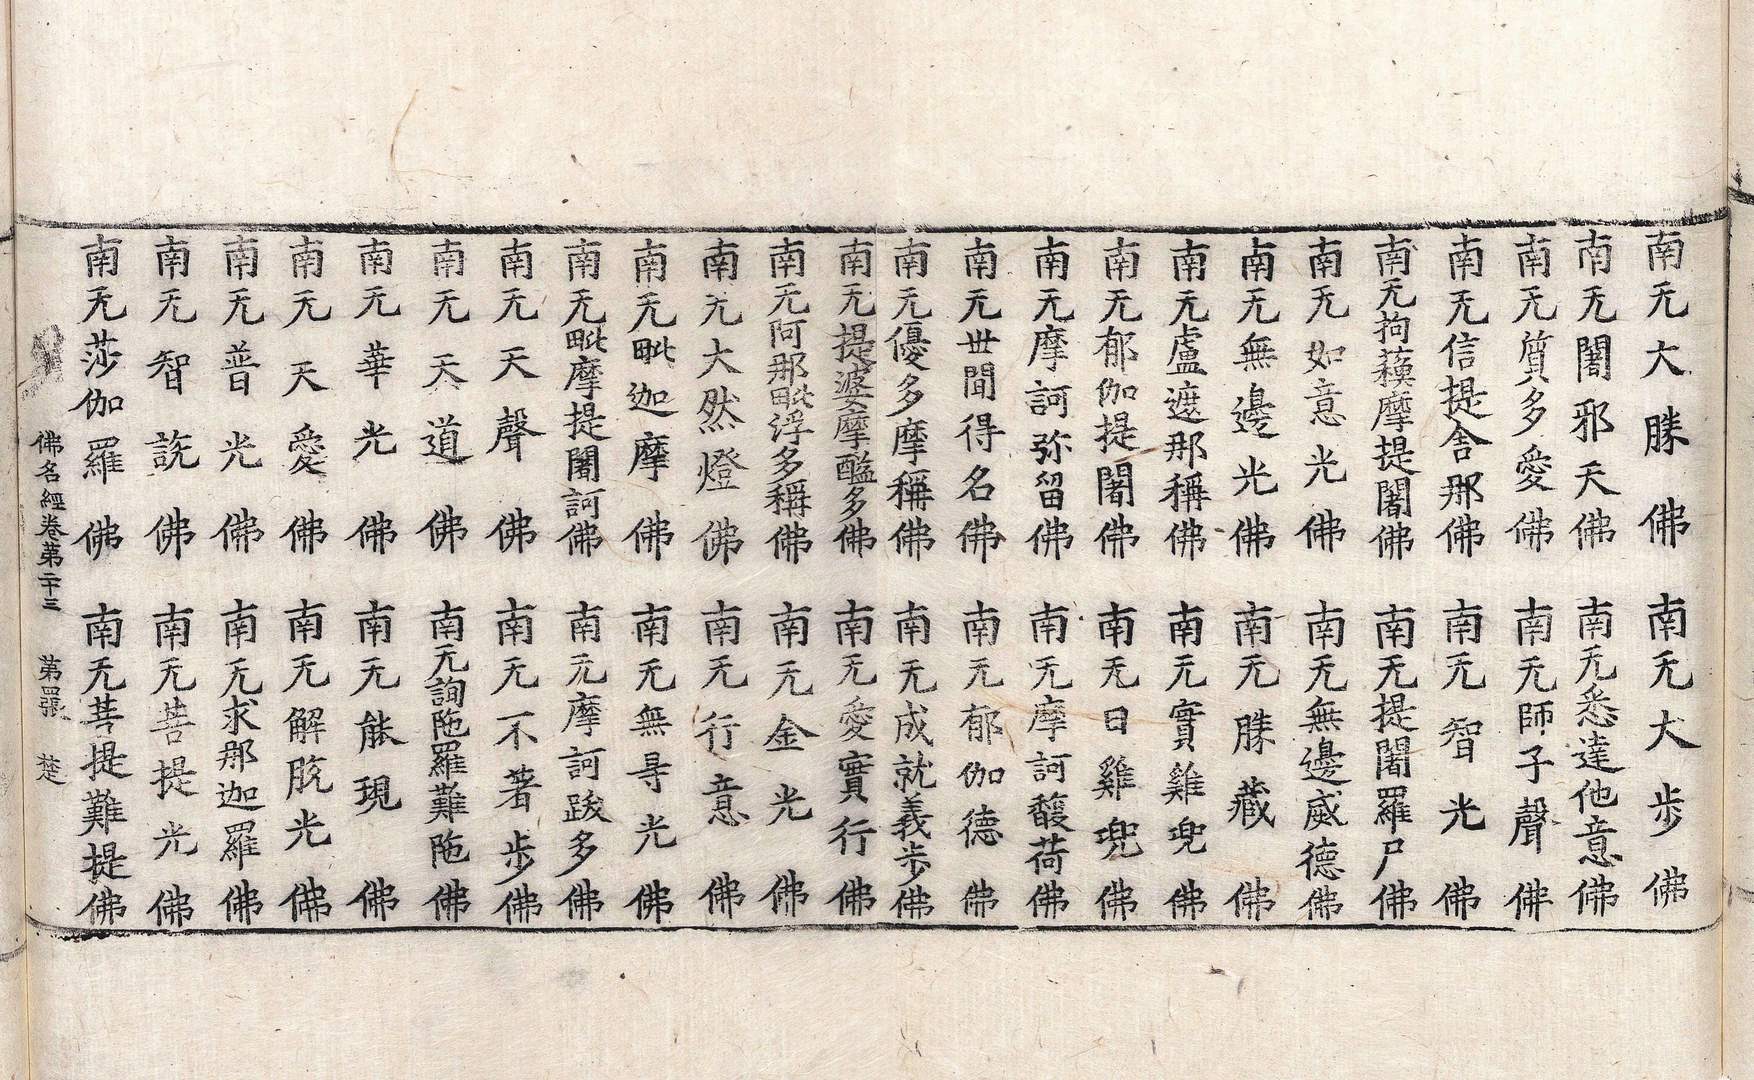 南无大勝佛　南无大步佛
南无闍邪天佛　南无悉達他意佛
南无質多愛佛　南无師子聲佛
南无信提舍那佛　南无智光佛
南无拘蘓摩提闍佛　南无提闍羅尸佛
南无如意光佛　南无無邊威德佛
南无無邊光佛　南无勝藏佛
南无盧遮那稱佛　南无實雞兜佛
南无郁伽提闍佛　南无日雞兜佛
南无摩訶弥留佛　南无摩訶馥荷佛
南无世閒得名佛　南无郁伽德佛
南无優多摩稱佛　南无成就義步佛
南无提婆摩醯多佛　南无愛實行佛
南无阿那毗浮多稱佛　南无金光佛
南无大然燈佛　南无行意佛
南无毗迦摩佛　南无無㝵光佛
南无毗摩提闍訶佛　南无摩訶跋多佛
南无天聲佛　南无不著步佛
南无天道佛　南无詢陁羅難陁佛
南无華光佛　南无能現佛
南无天愛佛　南无解脫光佛
南无普光佛　南无求那迦羅佛
南无智說佛　南无菩提光佛
南无莎伽羅佛　南无菩提難提佛
佛名經卷第二十三　第四張　楚